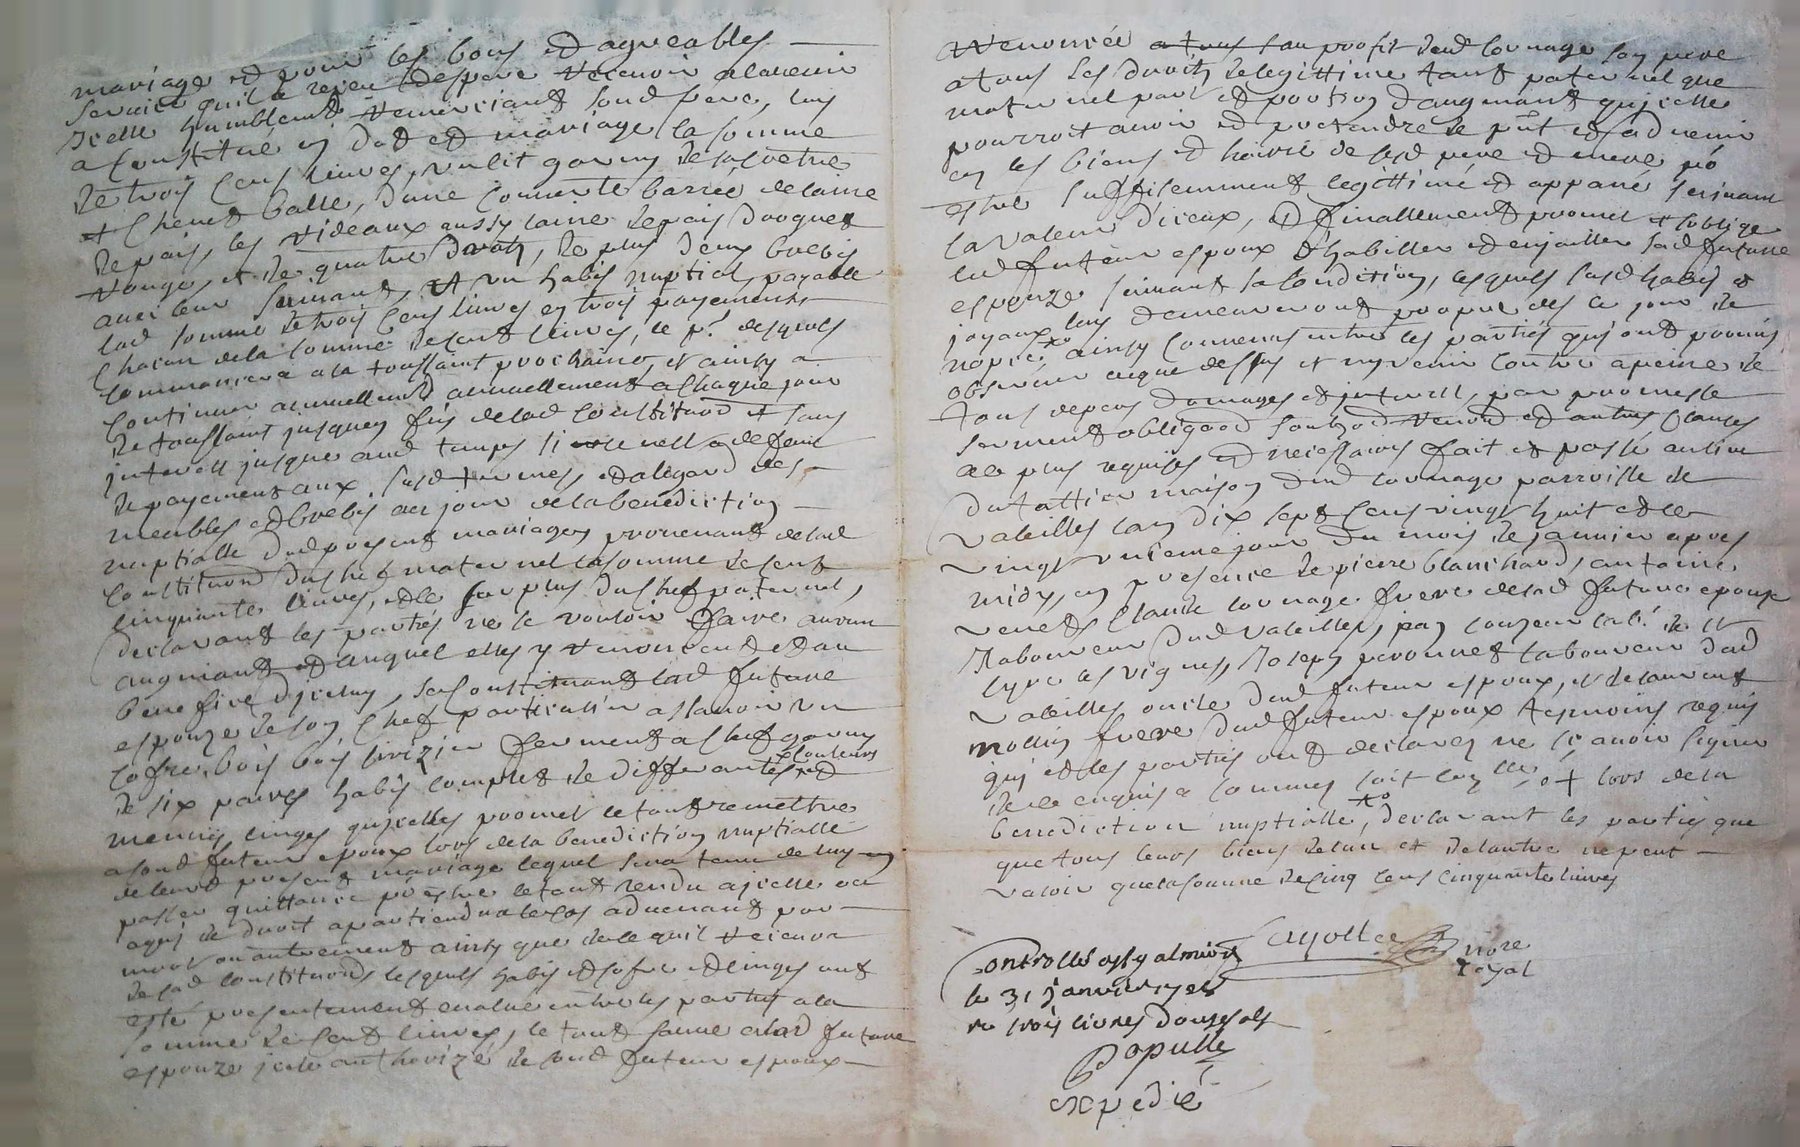 mariage et pour les bons et agreables
services qu'il a repeu et espere recevoir a ladvenir
Icelle humblement remerciant sond pere, luy
a constitué en dot et mariage la somme
de trois cens livres, un lit garny de sa
et chevet balle, d'une couverte barrée de laine
de pais, les rideaux aussy laine de pais
rouge, et de quatre draps, de plus deux brebis
avec leur suivant, et un habit nuptial, payable
lad somme de trois cens livres en trois payements
chacun de la somme de cent livres, le pr. desquels
commancera a la toussaint prochaine, et ainsy a
continuer annuellement a chaque jour
de toussaint jusques fin de lad constitution et sans
interest jusque aud temps si ce nest a defaut
de payement aux susd termes, et a legard des
meubles et brebis au jour de la benediction
nuptialle dud present mariage, provenant de lad
constitution du chef maternel la somme de cent
cinquante livres, et le surplus du chef paternel,
declarant les parties ne le vouloir faire aucun
augmant et auquel elles y renoncent et au
benefice d'iceluy, se constituant lad future
espouze de son chef particulier assavoir un
cofre bois serizier fermant a clef garny
de six paires habits complet de differantes couleurs et
menus linges qu'icelle promet le tout remettre
a sond futeur epoux lors de la benediction nuptialle
de leurd present mariage lequel sera tenu de luy en
passer quittance po estre le tout rendu a icelle ou
a qui de droit apartiendra le cas advenant par
mort ou autrement ainsy que de ce qu'il recevra
de sad constitution lesquels habits et cofre et linges ont
esté presentement evalué entre les parties a la
somme de cent livres, le tout
espouze icelle authorizé de sond futeur espoux
renoncée a tous au profit dud Cournage son pere
a tous les droits de legittime tant paternel que
maternel part et portion d'augmant qu'icelle
pourroit avoir et pretendre de pnt et a ladvenir
en les biens et hoirie de sesd pere et mere po
estre suffisemment legittimé et appané suivant
la valeur d'iceux, et finallement promet et s'oblige
led futeur espoux d'habiller et enjoailler sad future
espouze suivant sa condition, lesquels susd habits et
joyaux luy demeureront propre des le jour de
nopces ainsy convenus entre les parties qui ont promis
observer ce que dessus et ny venir contre a peine de
tous depens domages et interests, par promesse
serment obligaon soubzon renon et autres clauses
de plus requises et necessaires fait et passé au lieu
du maison dud Cournage parroisse de
Valeilles lan dix sept cens vingt huit et le
vingt unieme jour du mois de janvier apres
midy, en presence de pierre blanchard, antoine
Claude Cournage frere de lad future epouze
labourreur dud Valeilles, jean
les vignes, Joseph peronnet labourreur dud
Valeilles oncle dud futeur espoux, et de laurent
mollin frere dud futeur espoux tesmoins requis
qui et les parties ont declarez ne scavoir signer
de ce enquis a sommes soit et lors de la
benediction nuptialle, declarant les parties que
que tous leurs biens de lun et de lautre ne peut
valoir que la somme de cinq cens cinquante livres
Cayollee nore
royal
Controllé a st galmier
le 31 janvier 1728
ru trois livres douze sols
Populle
expedié